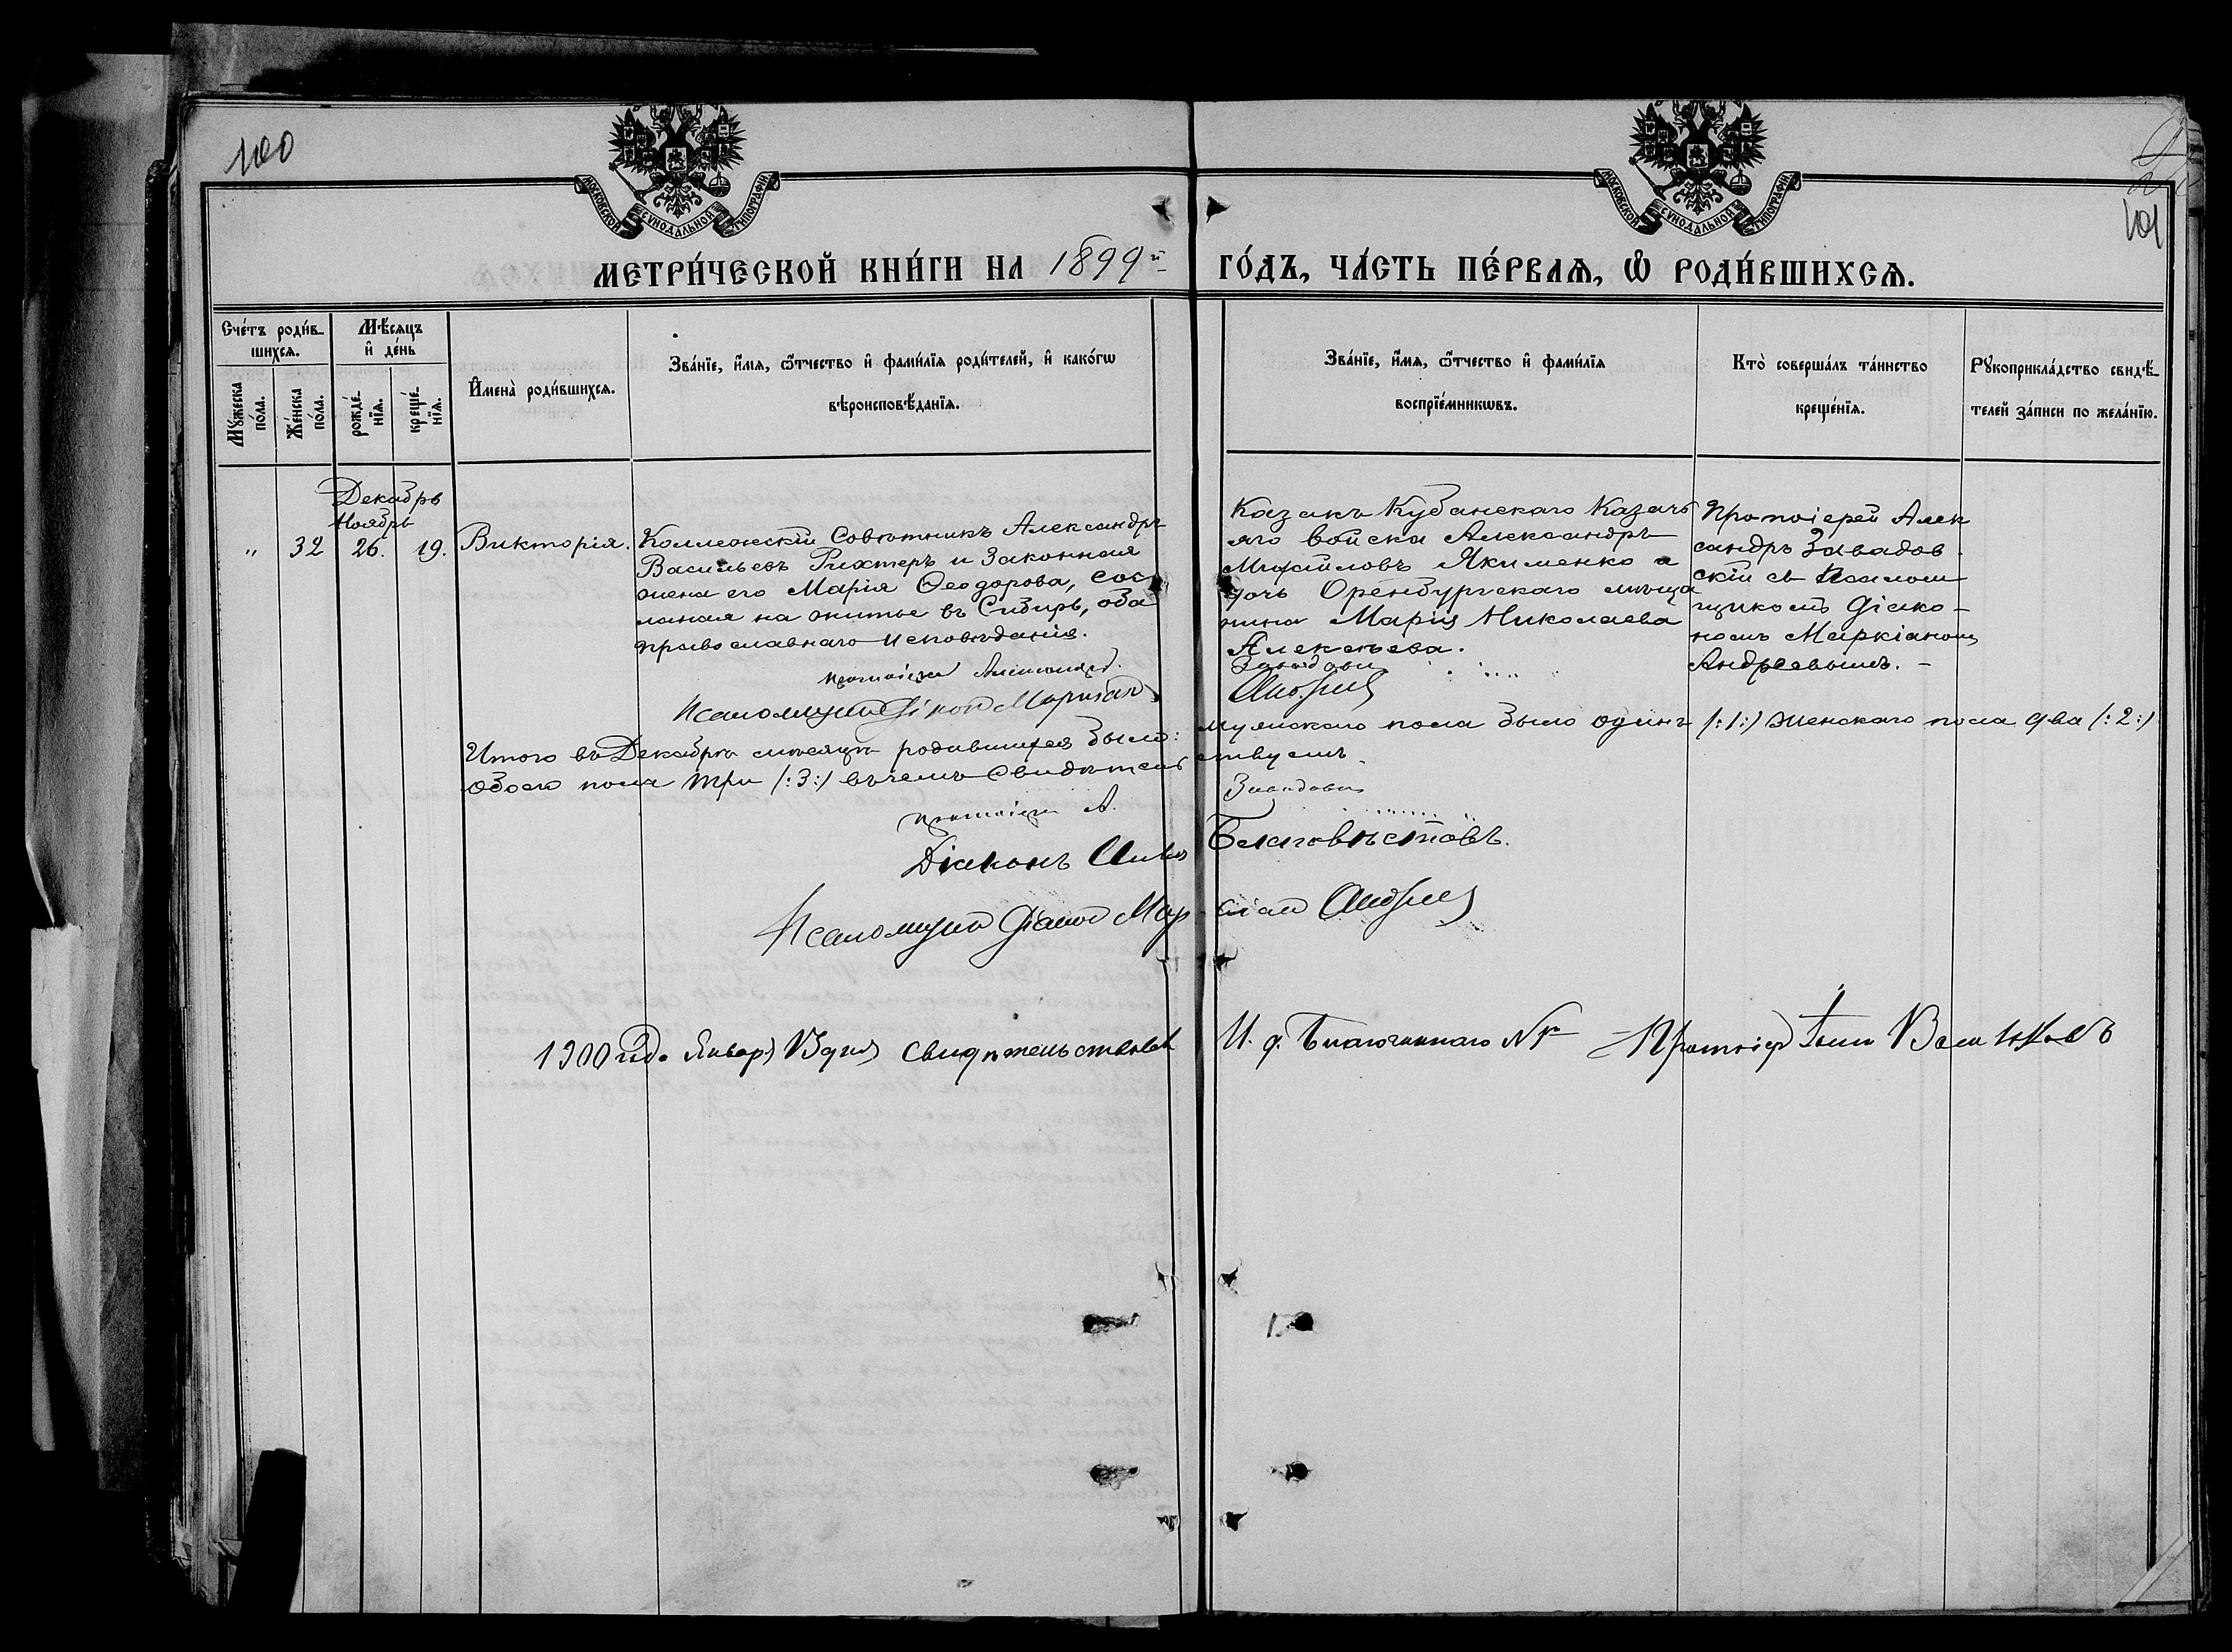 100
101
МОСКОВСКОЙ СѴНОДАЛЬНОЙ ТИПОГРАФІИ
МОСКОВСКОЙ СѴНОДАЛЬНОЙ ТИПОГРАФІИ
МЕТРИ́ЧЕСКОЙ КНИ́ГИ НА 1899й ГО́ДЪ, ЧА́СТЬ ПЕ́РВАѦ, Ѡ҆ РОДИ́ВШИХСѦ.
Сче́тъ роди́в-
шихсѧ.
Мꙋ́жеска
по́ла.
Же́нска
по́ла.
Мѣ́сѧцъ
и҆ де́нь
рожде́-
нїѧ.
креще́-
нїѧ.
И҆мена̀ роди́вшихсѧ.
Зва́нїе, и҆́мѧ, ѻ҆́тчество и҆ фами́лїѧ роди́телей, и҆ како́гѡ
вѣроисповѣ́данїѧ.
Зва́нїе, и҆́мѧ, ѻ҆́тчество и҆ фами́лїѧ
воспрїе́мникѡвъ.
Кто̀ соверша́лъ та́инство
креще́нїѧ.
Рꙋкоприкла́дство свидѣ́-
телей за́писи по жела́нїю.
Декабрь
Ноябрь
" 32 26. 19.
Викторія.
Коллежскій Совѣтникъ Александръ
Васильевъ Рихтеръ и законная
жена его Марія Ѳеодорова, сос-
ланая на житье въ Сибирь, оба
православнаго исповѣданія.
Казакъ Кубанскаго Казачь
яго войска Александръ
Михайловъ Якименко и
дочь Оренбургскаго мѣща
нина Марія Николаева
Алексѣева.
Протоіерей Алек
сандръ Завадов-
скій съ Псаломщ
щикомъ Діако-
номъ Маркіаномъ
Андреевымъ. -
Протоіерей Александр Завадовскій
Псаломщикъ Діаконъ Маркіан Андреев
Итого въ Декабрѣ мѣсяцѣ родившихся было: мужскаго пола было одинъ /:1:/ женскаго пола два /:2:/
обоего пола три /:3:/ въ чемъ свидѣтель ствуемъ
Протоіерей А. Завадовскій
Діаконъ Благовѣстовъ.
Псаломщикъ Діаконъ Маркіан Андреев
1900 года Января 13 дня свидѣтельствовал И. д. Благочиннаго № Протоіер